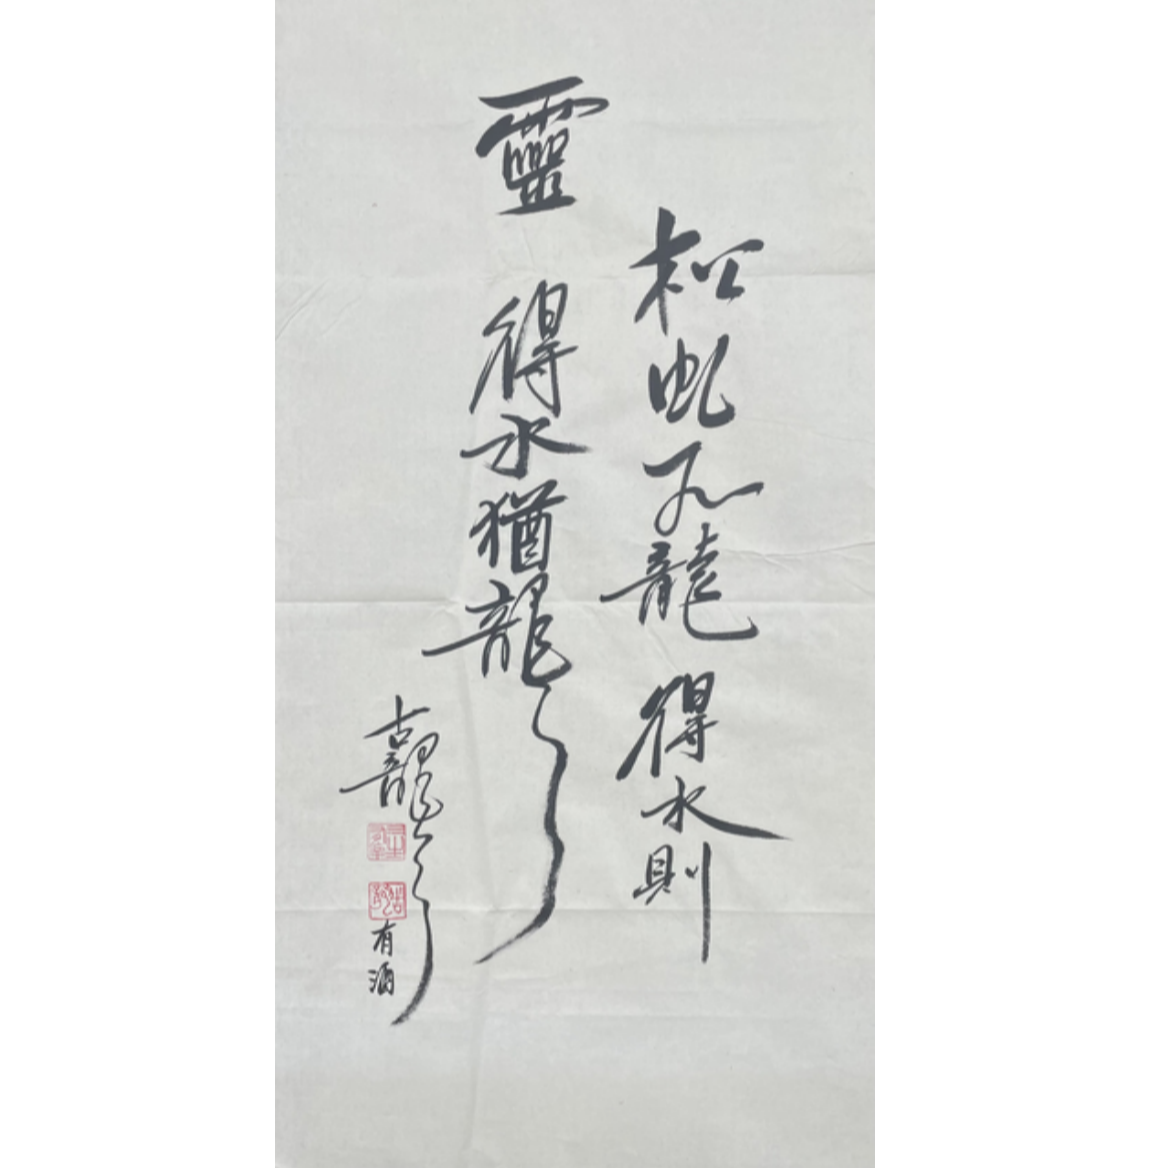 松虬不龍 得水則
靈 得水猶龍
古龍
有酒